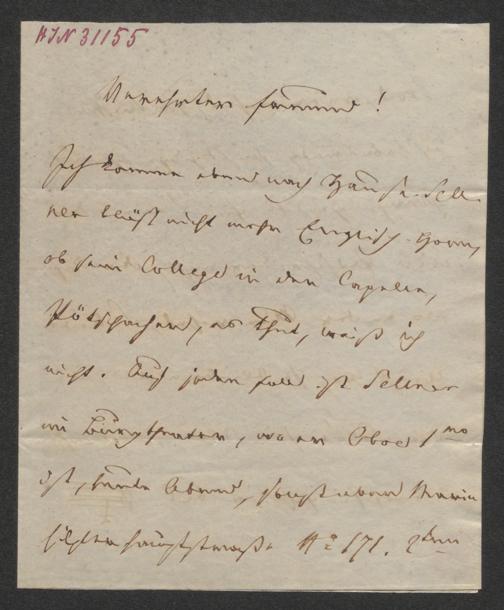 HIN 31155
Verehrter Freund!
Ich komme eben nach Hause. Sell-
ner bläst nicht mehr Englisch-Horn,
ob sein College in der Capelle,
Pötschacher, es thut, weiß ich
nicht. Auf jeden Fall ist Sellner
im Burgtheater, wo er Oboe 1mo
ist, heute Abend, sonst aber Maria
hilfer hauptstraße No 171. 2ten